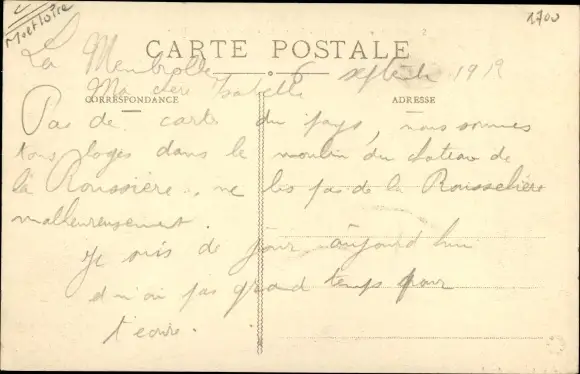 M et Loire
1700
CARTE POSTALE
La Membrolle 6 septembre 1919
Ma chère Isabelle
CORRESPONDANCE
ADRESSE
Pas de carte du pays, nous sommes
tous logés dans le moulin du chateau de
la Roussière, ne lis pas de la Rousselière
malheureusement.
Je suis de jour aujourd'hui
et n'ai pas grand temps pour
t'ecrire.